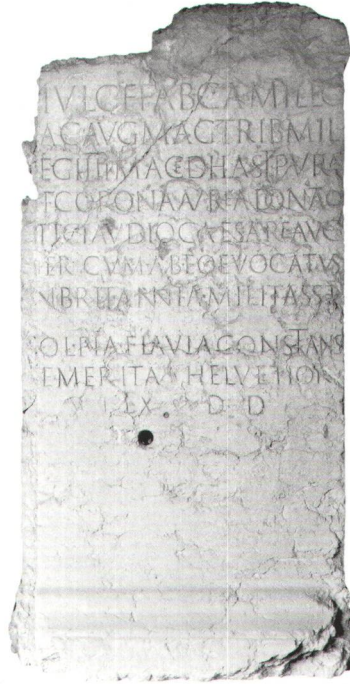 IVL C F FAB CAMILLO
AC AVG MAG TRIB MIL
EG IIII MACED HAST PVRA
T CORONA AVREA DONATO
TI CLAVDIO CAESARE AVG
TER CVM AB EO EVOCATVS
N BRITANNIA MILITASSET
OL PIA FLAVIA CONSTANS
EMERITA HELVETIOR
EX D D